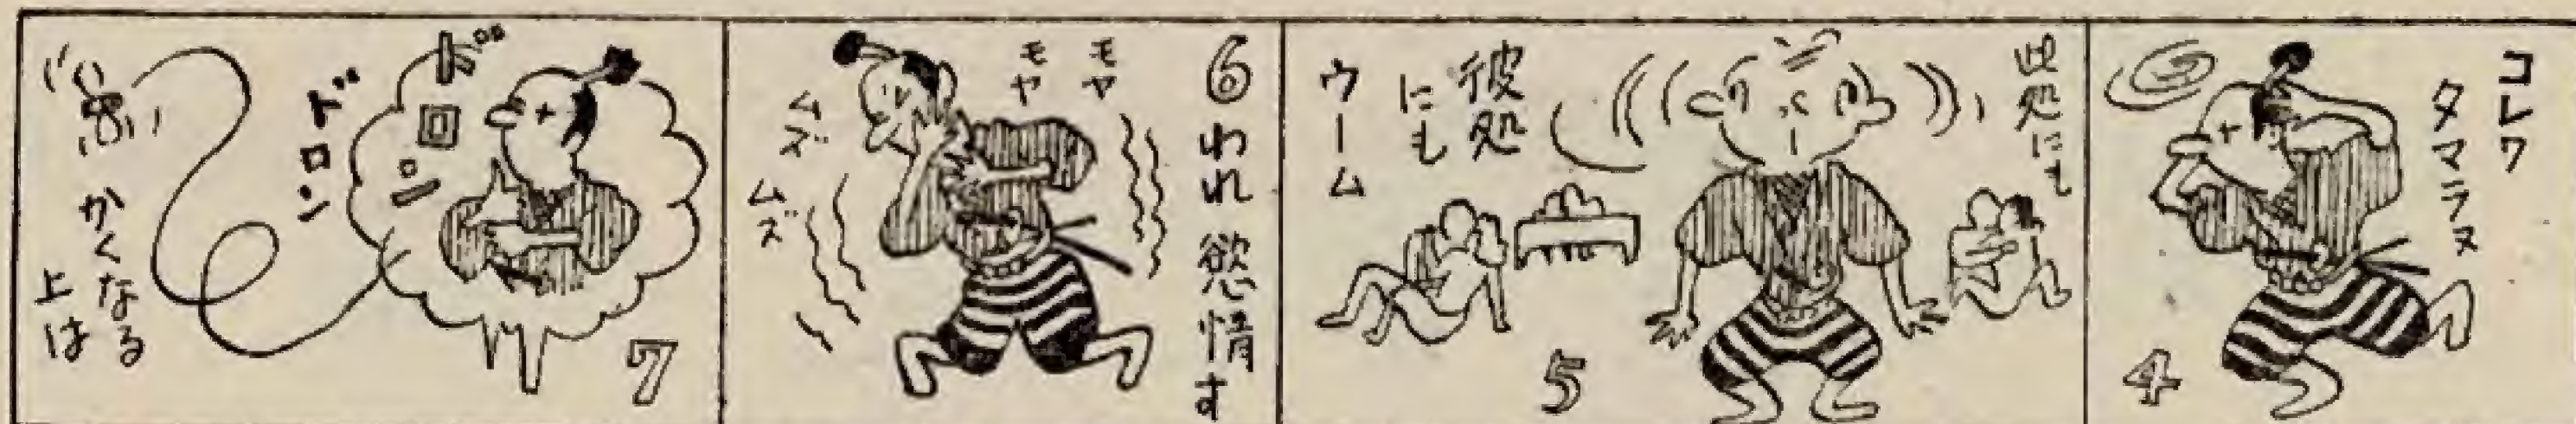 コレワ
タマラヌ
4
此処にも
彼処
にも
ウーム
5
⑥われ 慾情す
モヤ
モヤ
ムズ
ムズ
7
ドロン
ドロン
かくなる
上は